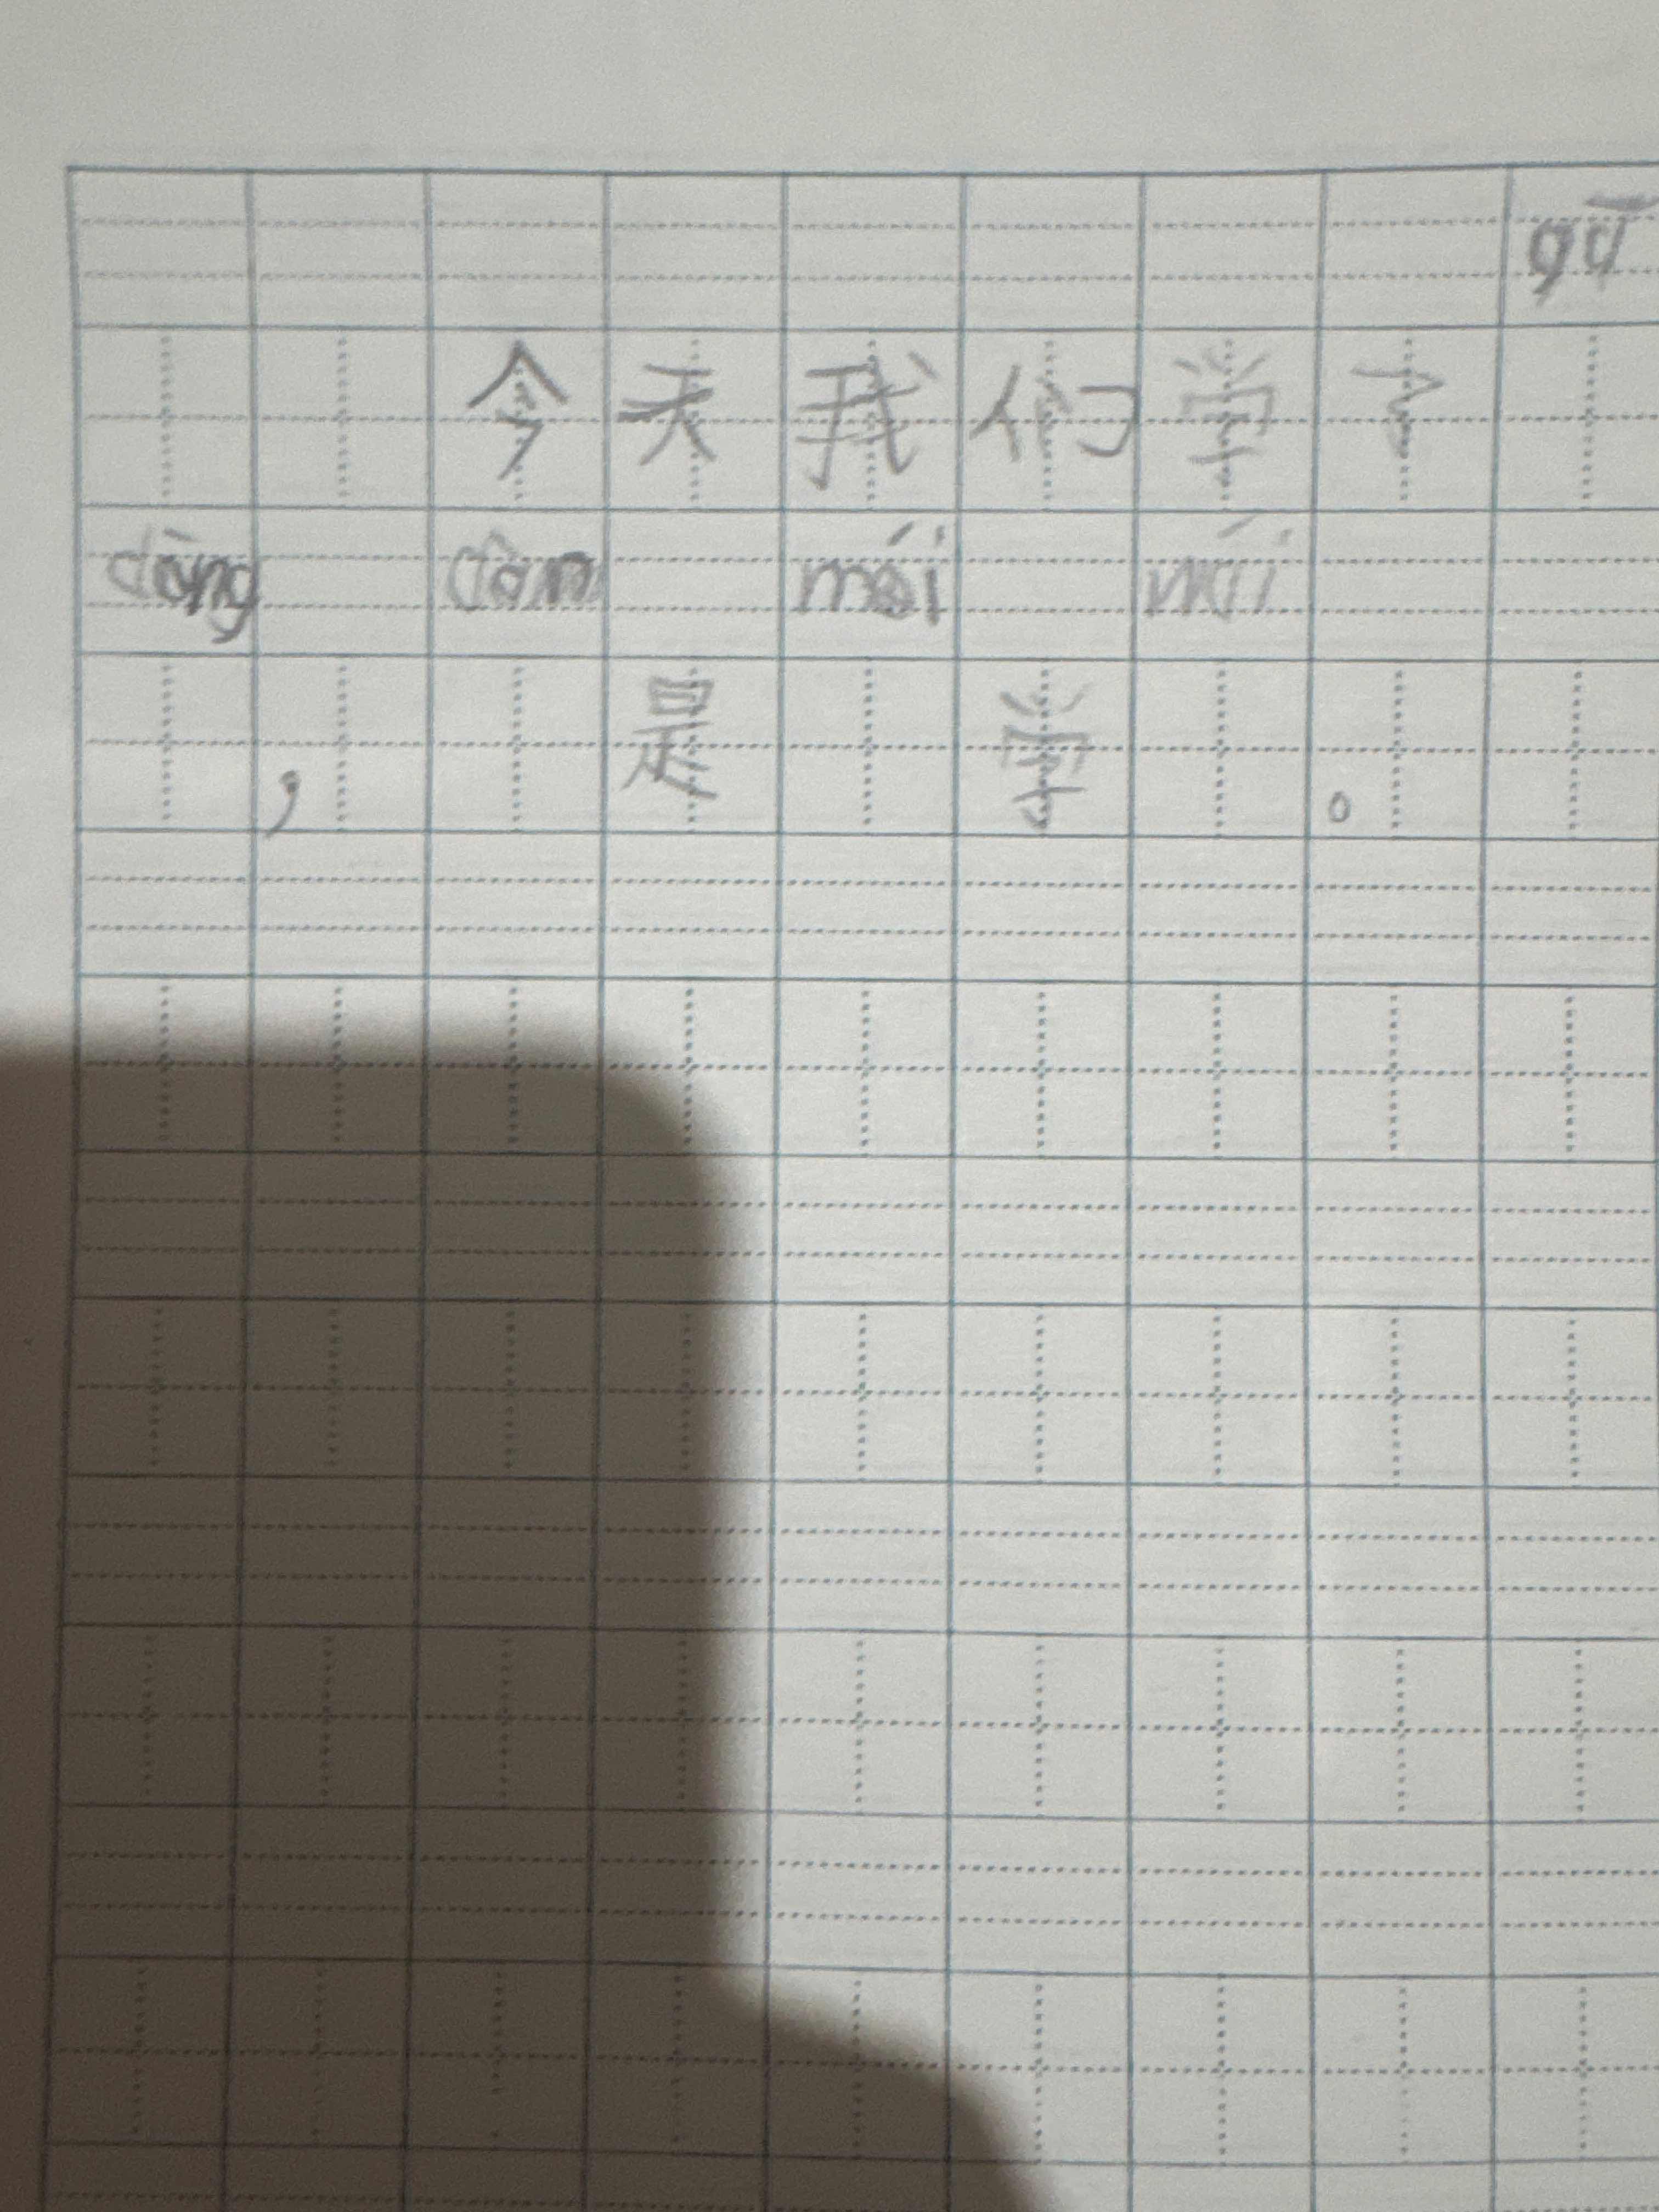 gā
今天我们学了
dòng dàn méi méi
， 是 学 。